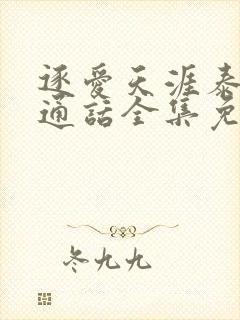 逐爱天涯泰
通话全集免
冬九九